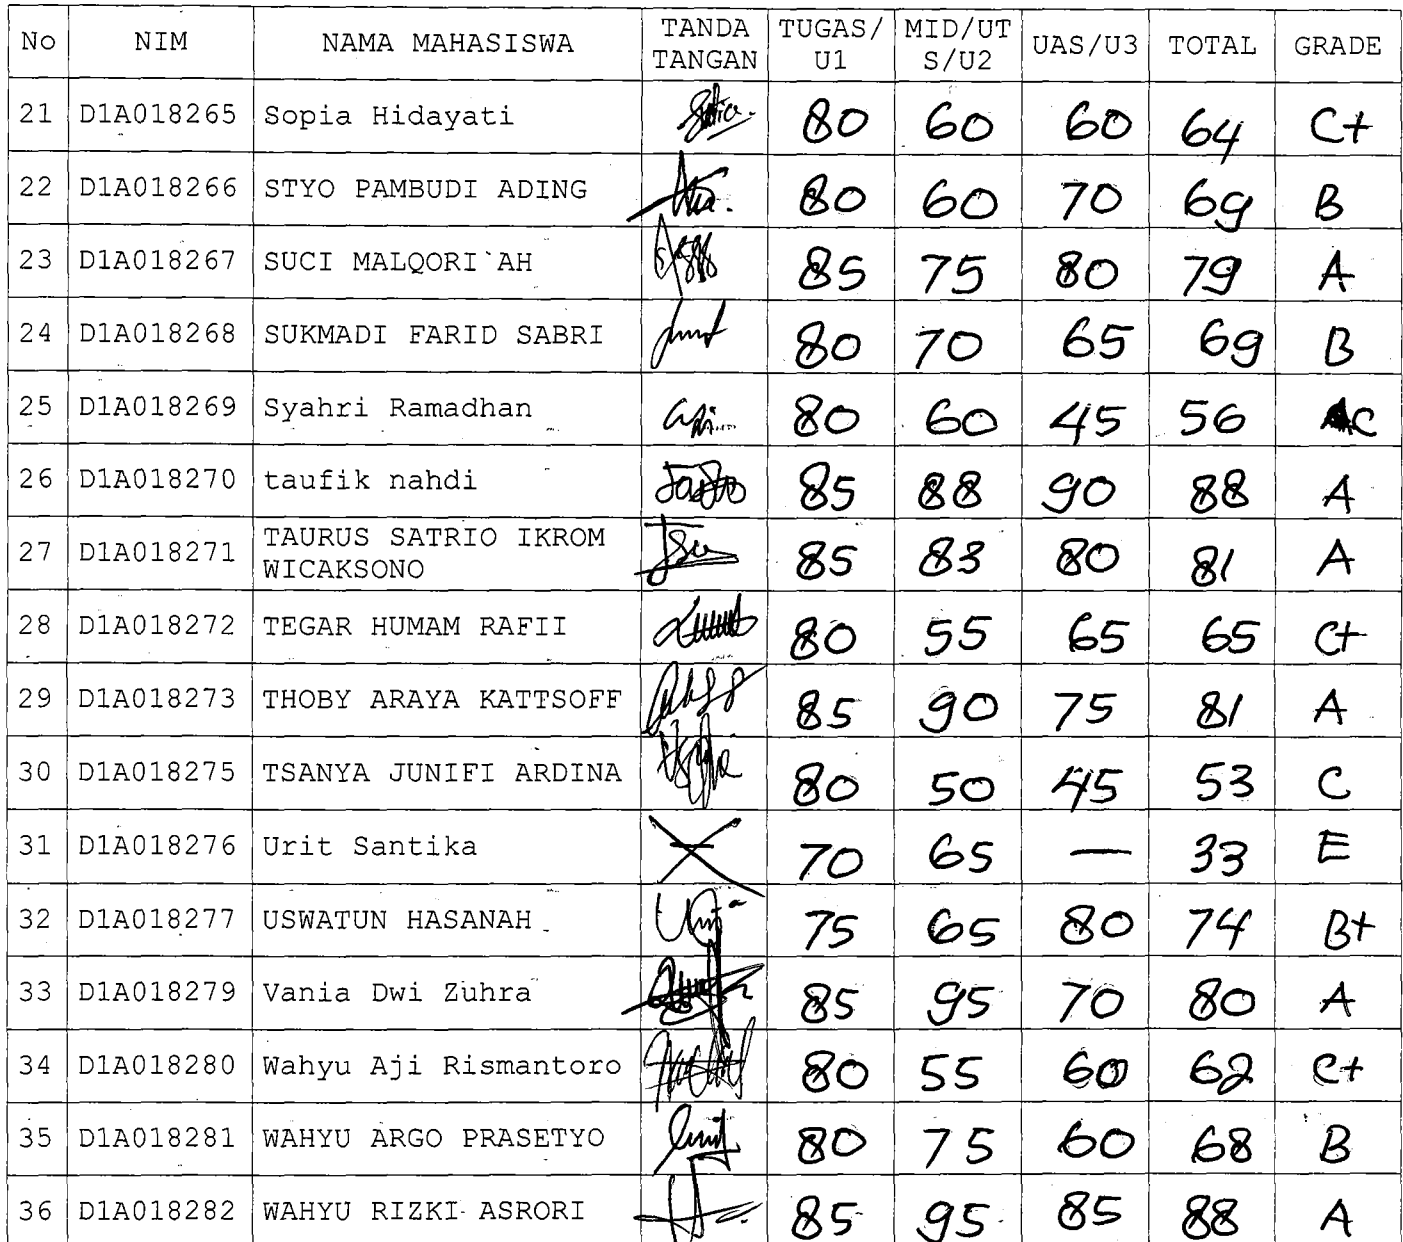 No NIM NAMA MAHASISWA TANDA TANGAN TUGAS/U1 MID/UTS/U2 UAS/U3 TOTAL GRADE
21 D1A018265 Sopia Hidayati 80 60 60 64 C+
22 D1A018266 STYO PAMBUDI ADING 80 60 70 69 B
23 D1A018267 SUCI MALQORI`AH 85 75 80 79 A
24 D1A018268 SUKMADI FARID SABRI 80 70 65 69 B
25 D1A018269 Syahri Ramadhan 80 60 45 56 C
26 D1A018270 taufik nahdi 85 88 90 88 A
27 D1A018271 TAURUS SATRIO IKROM WICAKSONO 85 83 80 81 A
28 D1A018272 TEGAR HUMAM RAFII 80 55 65 65 C+
29 D1A018273 THOBY ARAYA KATTSOFF 85 90 75 81 A
30 D1A018275 TSANYA JUNIFI ARDINA 80 50 45 53 C
31 D1A018276 Urit Santika 70 65 — 33 E
32 D1A018277 USWATUN HASANAH 75 65 80 74 B+
33 D1A018279 Vania Dwi Zuhra 85 95 70 80 A
34 D1A018280 Wahyu Aji Rismantoro 80 55 60 62 C+
35 D1A018281 WAHYU ARGO PRASETYO 80 75 60 68 B
36 D1A018282 WAHYU RIZKI ASRORI 85 95 85 88 A